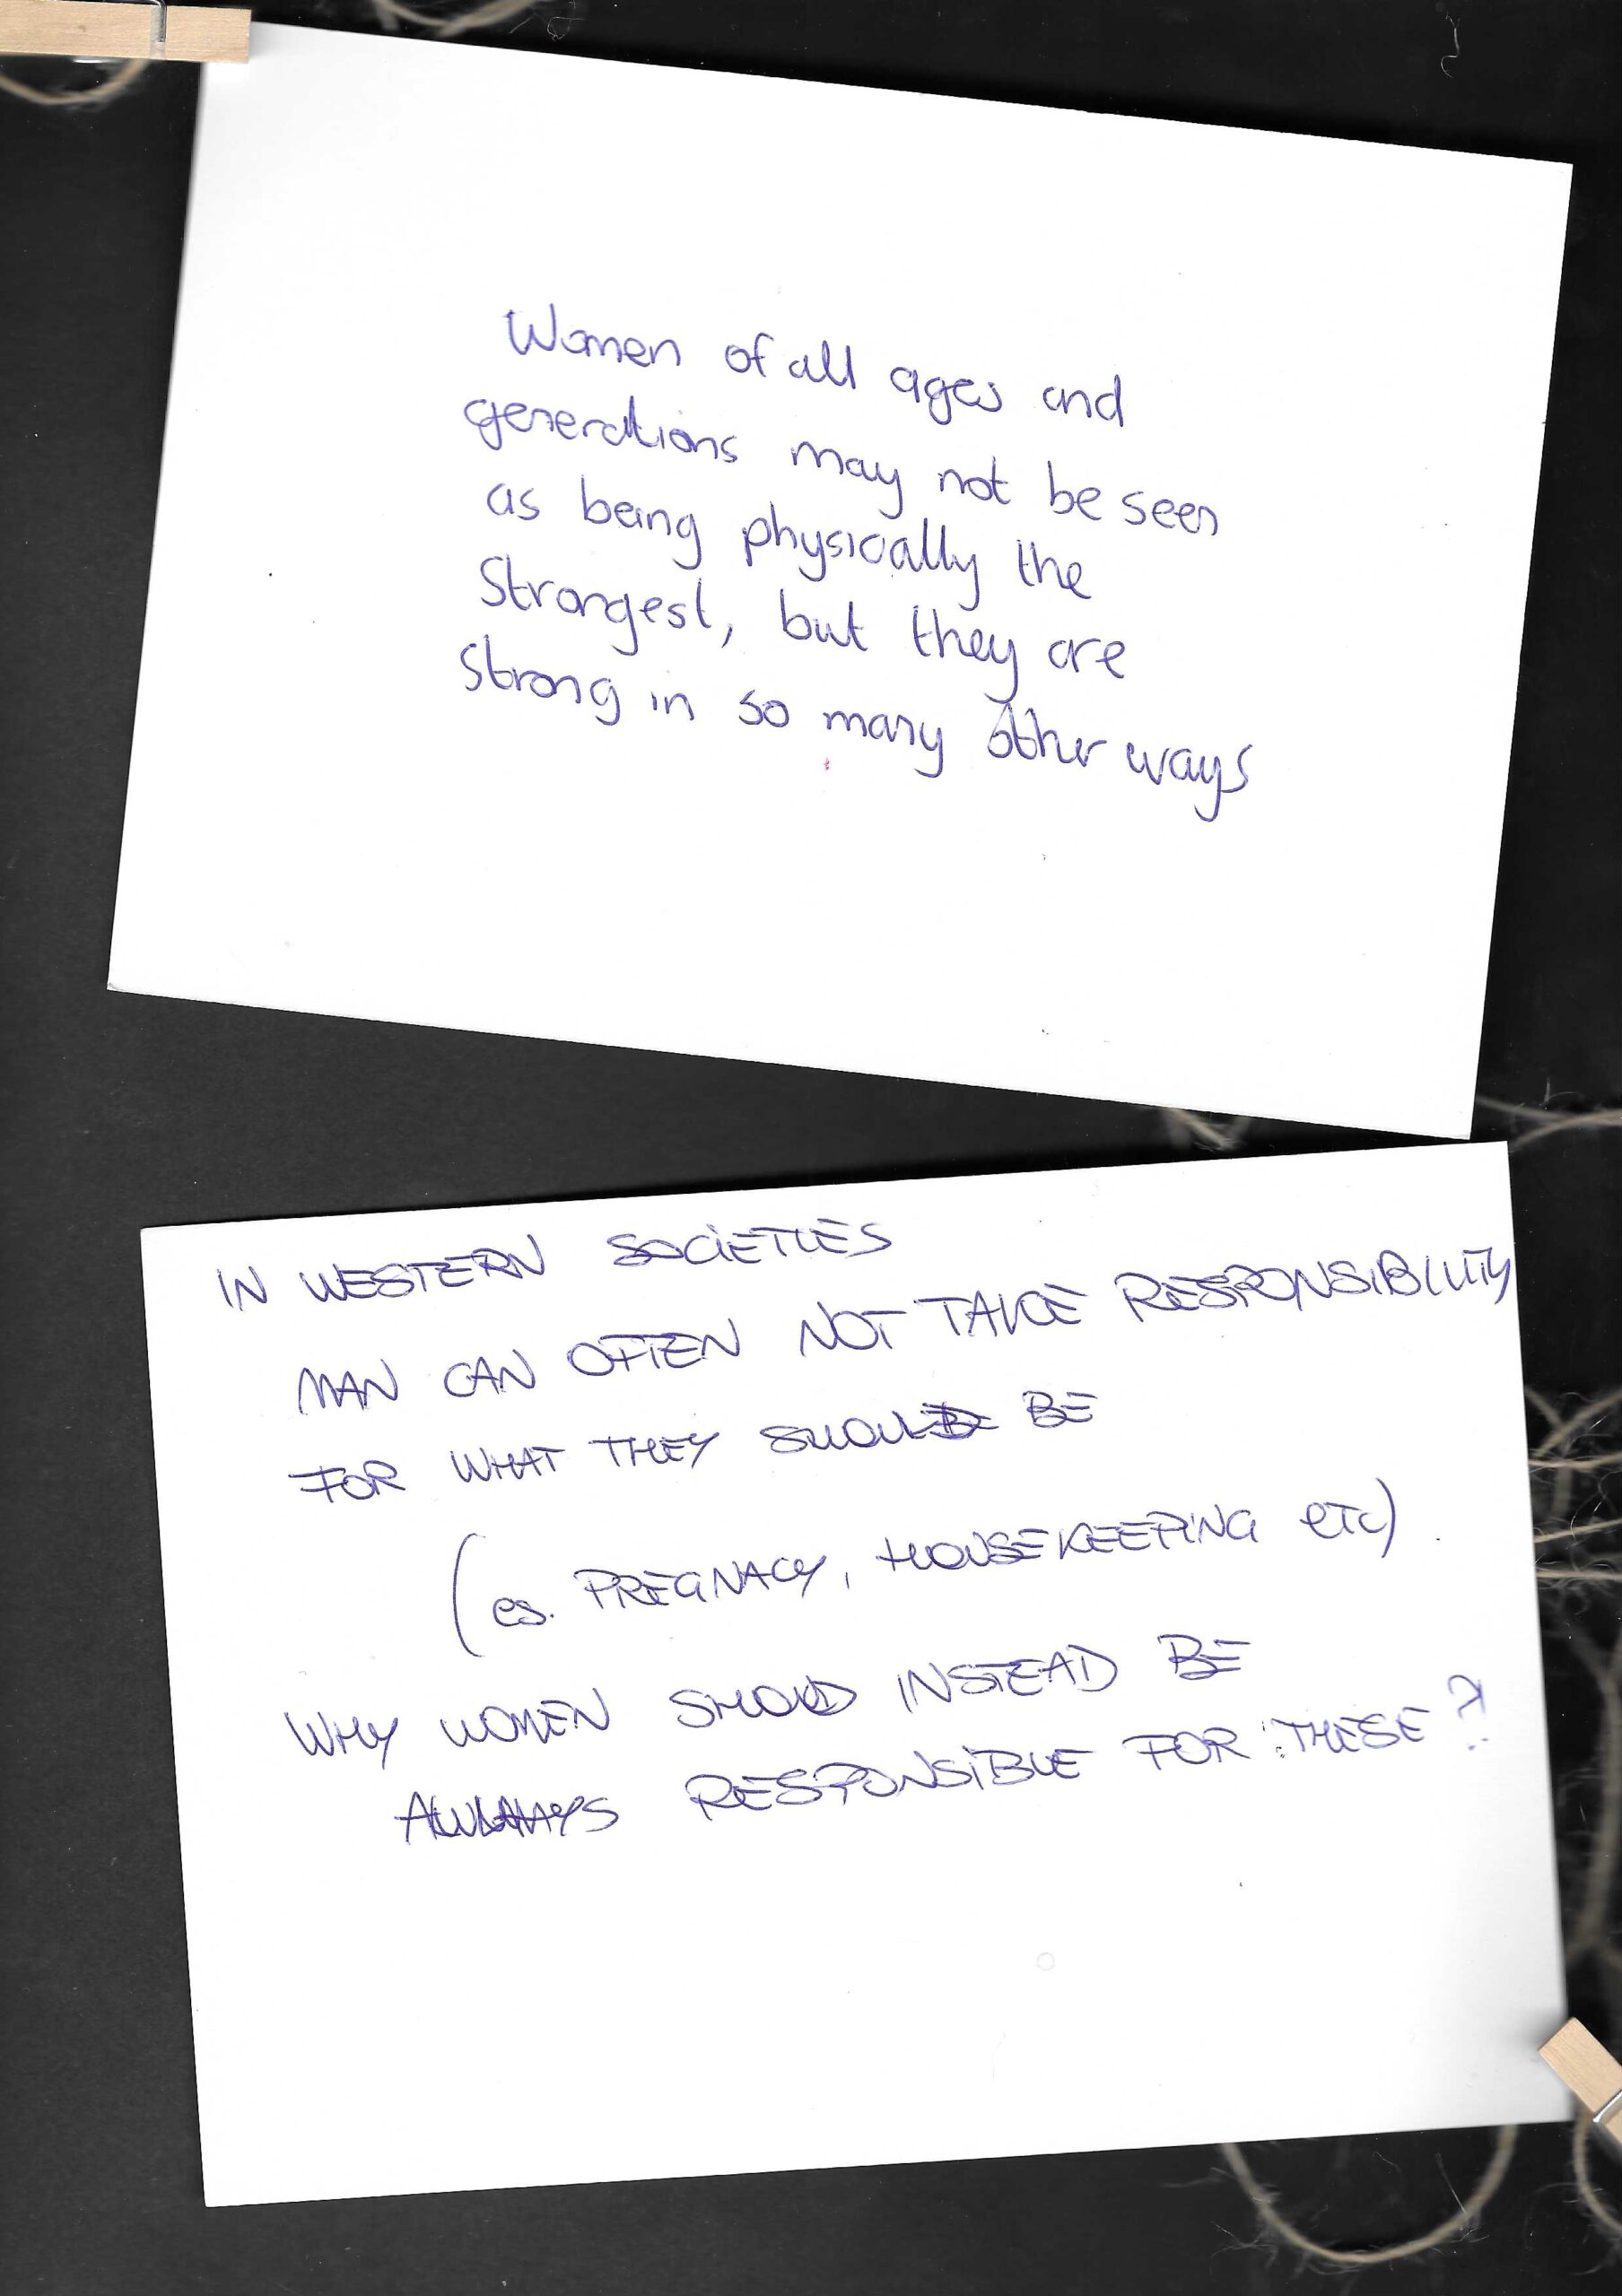 Women of all ages and
generations may not be seen
as being physically the
Strongest, but they are
strong in so many other ways
IN WESTERN SOCIETIES
MAN CAN OFTEN NOT TAKE RESPONSIBILITY
FOR WHAT THEY SHOULD BE
(es. PREGNACY, HOUSEKEEPING etc)
WHY WOMEN SHOULD INSTEAD BE
ALWAYS RESPONSIBLE FOR THESE?